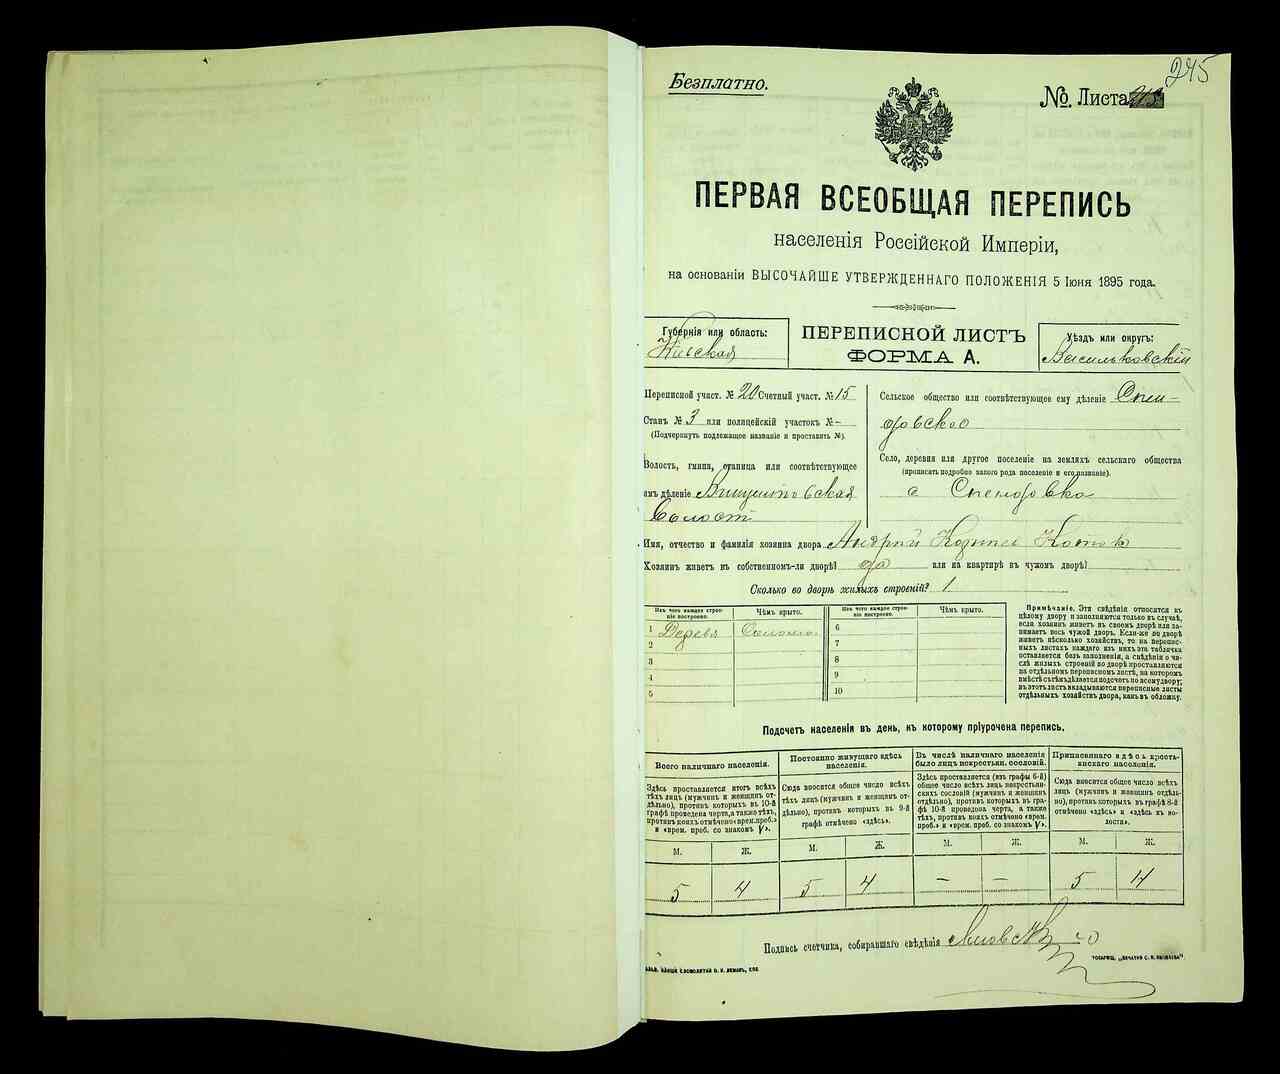 245
Безплатно.
№. Листа
ПЕРВАЯ ВСЕОБЩАЯ ПЕРЕПИСЬ
населенія Россійской Имперіи,
на основаніи ВЫСОЧАЙШЕ УТВЕРЖДЕННАГО ПОЛОЖЕНІЯ 5 Іюня 1895 года.
Губернія или область:
Кіевская
ПЕРЕПИСНОЙ ЛИСТЪ
ФОРМА А.
Уѣздъ или округъ:
Васильковскій
Переписной участ. № 20 Счетный участ. № 15
Станъ № 3 или полицейскій участокъ № -
(Подчеркнуть подлежащее названіе и проставить №).
Волость, гмина, станица или соотвѣтствующее
имъ дѣленіе
Волость
Сельское общество или соотвѣтствующее ему дѣленіе
Село, деревня или другое поселеніе на земляхъ сельскаго общества
(прописать подробно какого рода поселеніе и его названіе).
с
Имя, отчество и фамилія хозяина двора Андрей
Хозяинъ живетъ въ собственномъ-ли дворѣ? да или на квартирѣ въ чужомъ дворѣ?
Сколько во дворѣ жилыхъ строеній? 1
Изъ чего каждое строе-
ніе построено.
Чѣмъ крыто.
Изъ чего каждое строе-
ніе построено.
Чѣмъ крыто.
1 Дерева Соломою 6
2 7
3 8
4 9
5 10
Примѣчаніе. Эти свѣдѣнія относятся къ
цѣлому двору и заполняются только въ случаѣ,
если хозяинъ живетъ въ своемъ дворѣ или за-
нимаетъ весь чужой дворъ. Если-же во дворѣ
живетъ нѣсколько хозяйствъ, то на перепис-
ныхъ листахъ каждаго изъ нихъ эта табличка
оставляется безъ заполненія, а свѣдѣнія о чи-
слѣ жилыхъ строеній во дворѣ проставляются
на отдѣльномъ переписномъ листѣ, на которомъ
вмѣстѣ съ тѣмъ дѣлается подсчетъ по всему двору;
въ этотъ листъ вкладываются переписные листы
отдѣльныхъ хозяйствъ двора, какъ въ обложку.
Подсчетъ населенія въ день, къ которому пріурочена перепись.
Всего наличнаго населенія.
Здѣсь проставляется итогъ всѣхъ
тѣхъ лицъ (мужчинъ и женщинъ от-
дѣльно), противъ которыхъ въ 10-й
графѣ проведена черта, а также тѣхъ,
противъ коихъ отмѣчено «врем. преб.»
и «врем. преб. со знакомъ V».
Постоянно живущаго здѣсь
населенія.
Сюда вносится общее число всѣхъ
тѣхъ лицъ (мужчинъ и женщинъ от-
дѣльно), противъ которыхъ въ 9-й
графѣ отмѣчено «здѣсь».
Въ числѣ наличнаго населенія
было лицъ некрестьян. сословій.
Здѣсь проставляется (изъ графы 6-й)
общее число всѣхъ некрестьян-
скихъ сословій (мужчинъ и женщинъ
отдѣльно), противъ которыхъ въ гра-
фѣ 10-й проведена черта, а также
тѣхъ, противъ коихъ отмѣчено «врем.
преб.» и «врем. преб. со знакомъ V».
Приписаннаго здѣсь кресть-
янскаго населенія.
Сюда вносится общее число всѣхъ
лицъ (мужчинъ и женщинъ отдѣль-
но), противъ которыхъ въ графѣ 8-й
отмѣчено «здѣсь» и «здѣсь къ во-
лости».
М. Ж. М. Ж. М. Ж. М. Ж.
5 4 5 4 – – 5 4
Подпись счетчика, собиравшаго свѣдѣнія
ТОВАРИЩ. „ПЕЧАТНЯ С. П. ЯКОВЛЕВА“.